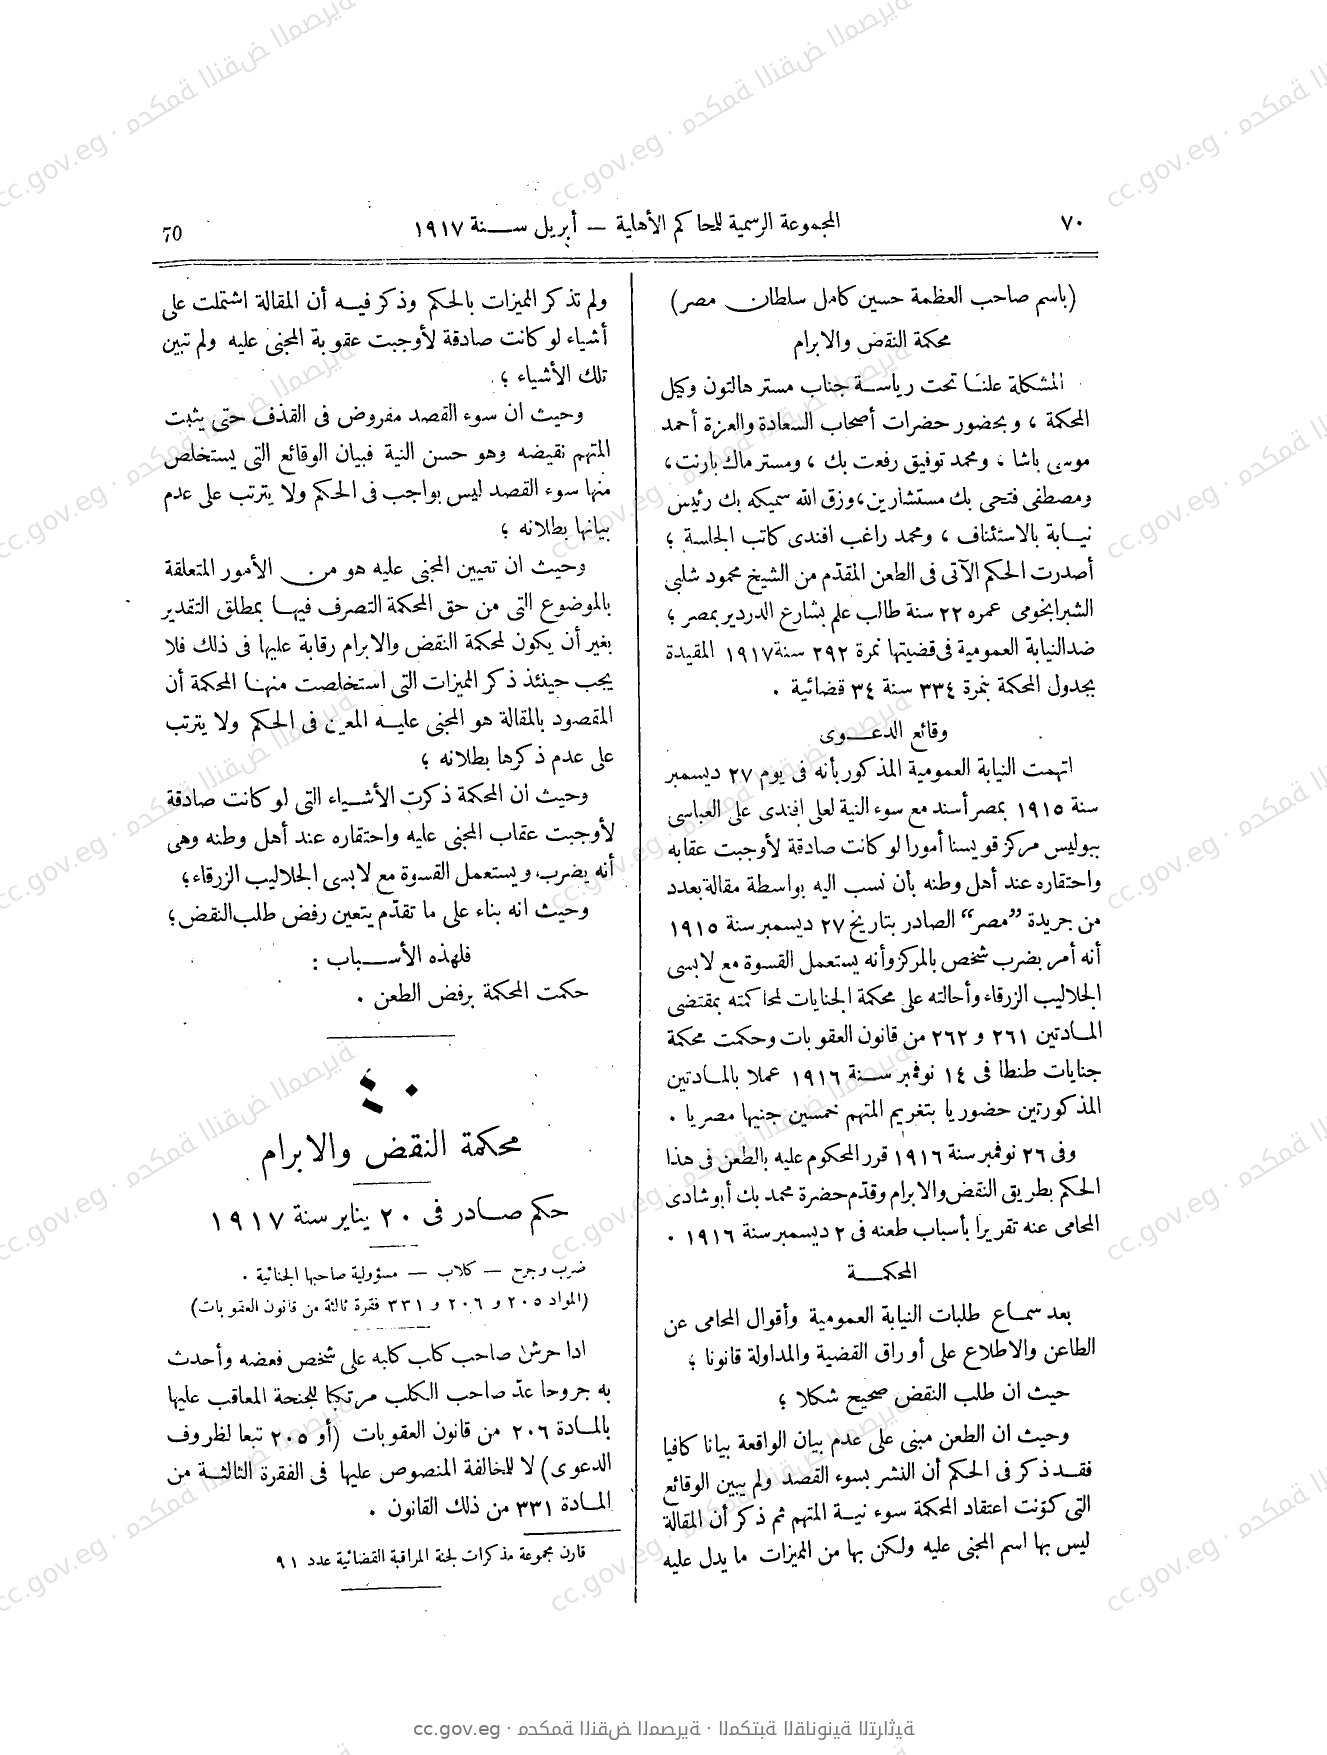 ٧٠
المجموعة الرسمية للمحاكم الأهلية — أبريل سنة ١٩١٧
70
(باسم صاحب العظمة حسين كامل سلطان مصر)
محكمة النقض والابرام
المشكلة علنا تحت رياسة جناب مستر هالتون وكيل
المحكمة ، وبحضور حضرات أصحاب السعادة والعزة أحمد
موسى باشا ، ومحمد توفيق رفعت بك ، ومستر ماك بارنت ،
ومصطفى فتحى بك مستشارين ، وزق الله سميكه بك رئيس
نيابة بالاستئناف ، ومحمد راغب افندى كاتب الجلسة ؛
أصدرت الحكم الآتى فى الطعن المقدّم من الشيخ محمود شلبى
الشبرابخومى عمره ٢٢ سنة طالب علم بشارع الدردير بمصر ؛
ضد النيابة العمومية فى قضيتها نمرة ٢٩٢ سنة ١٩١٧ المقيدة
بجدول المحكمة بنمرة ٣٣٤ سنة ٣٤ قضائية .
وقائع الدعوى
اتهمت النيابة العمومية المذكور بأنه فى يوم ٢٧ ديسمبر
سنة ١٩١٥ بمصر أسند مع سوء النية لعلى افندى على العباسى
ببوليس مركز قويسنا أمورا لو كانت صادقة لأوجبت عقابه
واحتقاره عند أهل وطنه بأن نسب اليه بواسطة مقالة بعدد
من جريدة ”مصر“ الصادر بتاريخ ٢٧ ديسمبر سنة ١٩١٥
أنه أمر بضرب شخص بالمركز وأنه يستعمل القسوة مع لابسى
الجلاليب الزرقاء وأحالته على محكمة الجنايات لمحاكمته بمقتضى
المادتين ٢٦١ و ٢٦٢ من قانون العقوبات وحكمت محكمة
جنايات طنطا فى ١٤ نوفمبر سنة ١٩١٦ عملا بالمادتين
المذكورتين حضوريا بتغريم المتهم خمسين جنيها مصريا .
وفى ٢٦ نوفمبر سنة ١٩١٦ قرر المحكوم عليه بالطعن فى هذا
الحكم بطريق النقض والابرام وقدّم حضرة محمد بك أبو شادى
المحامى عنه تقريرا بأسباب طعنه فى ٢ ديسمبر سنة ١٩١٦ .
المحكمة
بعد سماع طلبات النيابة العمومية وأقوال المحامى عن
الطاعن والاطلاع على أوراق القضية والمداولة قانونا ؛
حيث ان طلب النقض صحيح شكلا ؛
وحيث ان الطعن مبنى على عدم بيان الواقعة بيانا كافيا
فقد ذكر فى الحكم أن النشر بسوء القصد ولم يبين الوقائع
التى كوّنت اعتقاد المحكمة سوء نية المتهم ثم ذكر أن المقالة
ليس بها اسم المجنى عليه ولكن بها من الميزات ما يدل عليه
ولم تذكر الميزات بالحكم وذكر فيه أن المقالة اشتملت على
أشياء لو كانت صادقة لأوجبت عقوبة المجنى عليه ولم تبين
تلك الأشياء ؛
وحيث ان سوء القصد مفروض فى القذف حتى يثبت
المتهم نقيضه وهو حسن النية فبيان الوقائع التى يستخلص
منها سوء القصد ليس بواجب فى الحكم ولا يترتب على عدم
بيانها بطلانه ؛
وحيث ان تعيين المجنى عليه هو من الأمور المتعلقة
بالموضوع التى من حق المحكمة التصرف فيها بمطلق التقدير
بغير أن يكون لمحكمة النقض والابرام رقابة عليها فى ذلك فلا
يجب حينئذ ذكر الميزات التى استخلصت منها المحكمة أن
المقصود بالمقالة هو المجنى عليه المعين فى الحكم ولا يترتب
على عدم ذكرها بطلانه ؛
وحيث ان المحكمة ذكرت الأشياء التى لو كانت صادقة
لأوجبت عقاب المجنى عليه واحتقاره عند أهل وطنه وهى
أنه يضرب ويستعمل القسوة مع لابسى الجلاليب الزرقاء ؛
وحيث انه بناء على ما تقدّم يتعين رفض طلب النقض ؛
فلهذه الأسباب :
حكمت المحكمة برفض الطعن .
٤٠
محكمة النقض والابرام
حكم صادر فى ٢٠ يناير سنة ١٩١٧
ضرب وجرح — كلاب — مسؤولية صاحبها الجنائية .
(المواد ٢٠٥ و ٢٠٦ و ٣٣١ فقرة ثالثة من قانون العقوبات)
اذا حرش صاحب كلب كلبه على شخص فعضه وأحدث
به جروحا عدّ صاحب الكلب مرتكبا للجنحة المعاقب عليها
بالمادة ٢٠٦ من قانون العقوبات (أو ٢٠٥ تبعا لظروف
الدعوى) لا للمخالفة المنصوص عليها فى الفقرة الثالثة من
المادة ٣٣١ من ذلك القانون .
قارن مجموعة مذكرات لجنة المراقبة القضائية عدد ٩١
cc.gov.eg · محكمة النقض المصرية · المكتبة القانونية التراثية